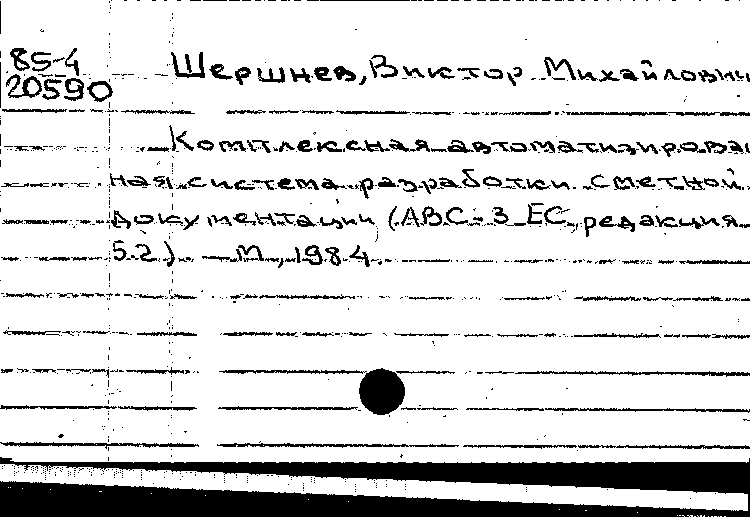 85-4
20590
Шершнев, Виктор Михайлович
Комплексная автоматизирован
ная система разработки сметной
документации (АВС-3 ЕС, редакция
5.2). — М, 1984.